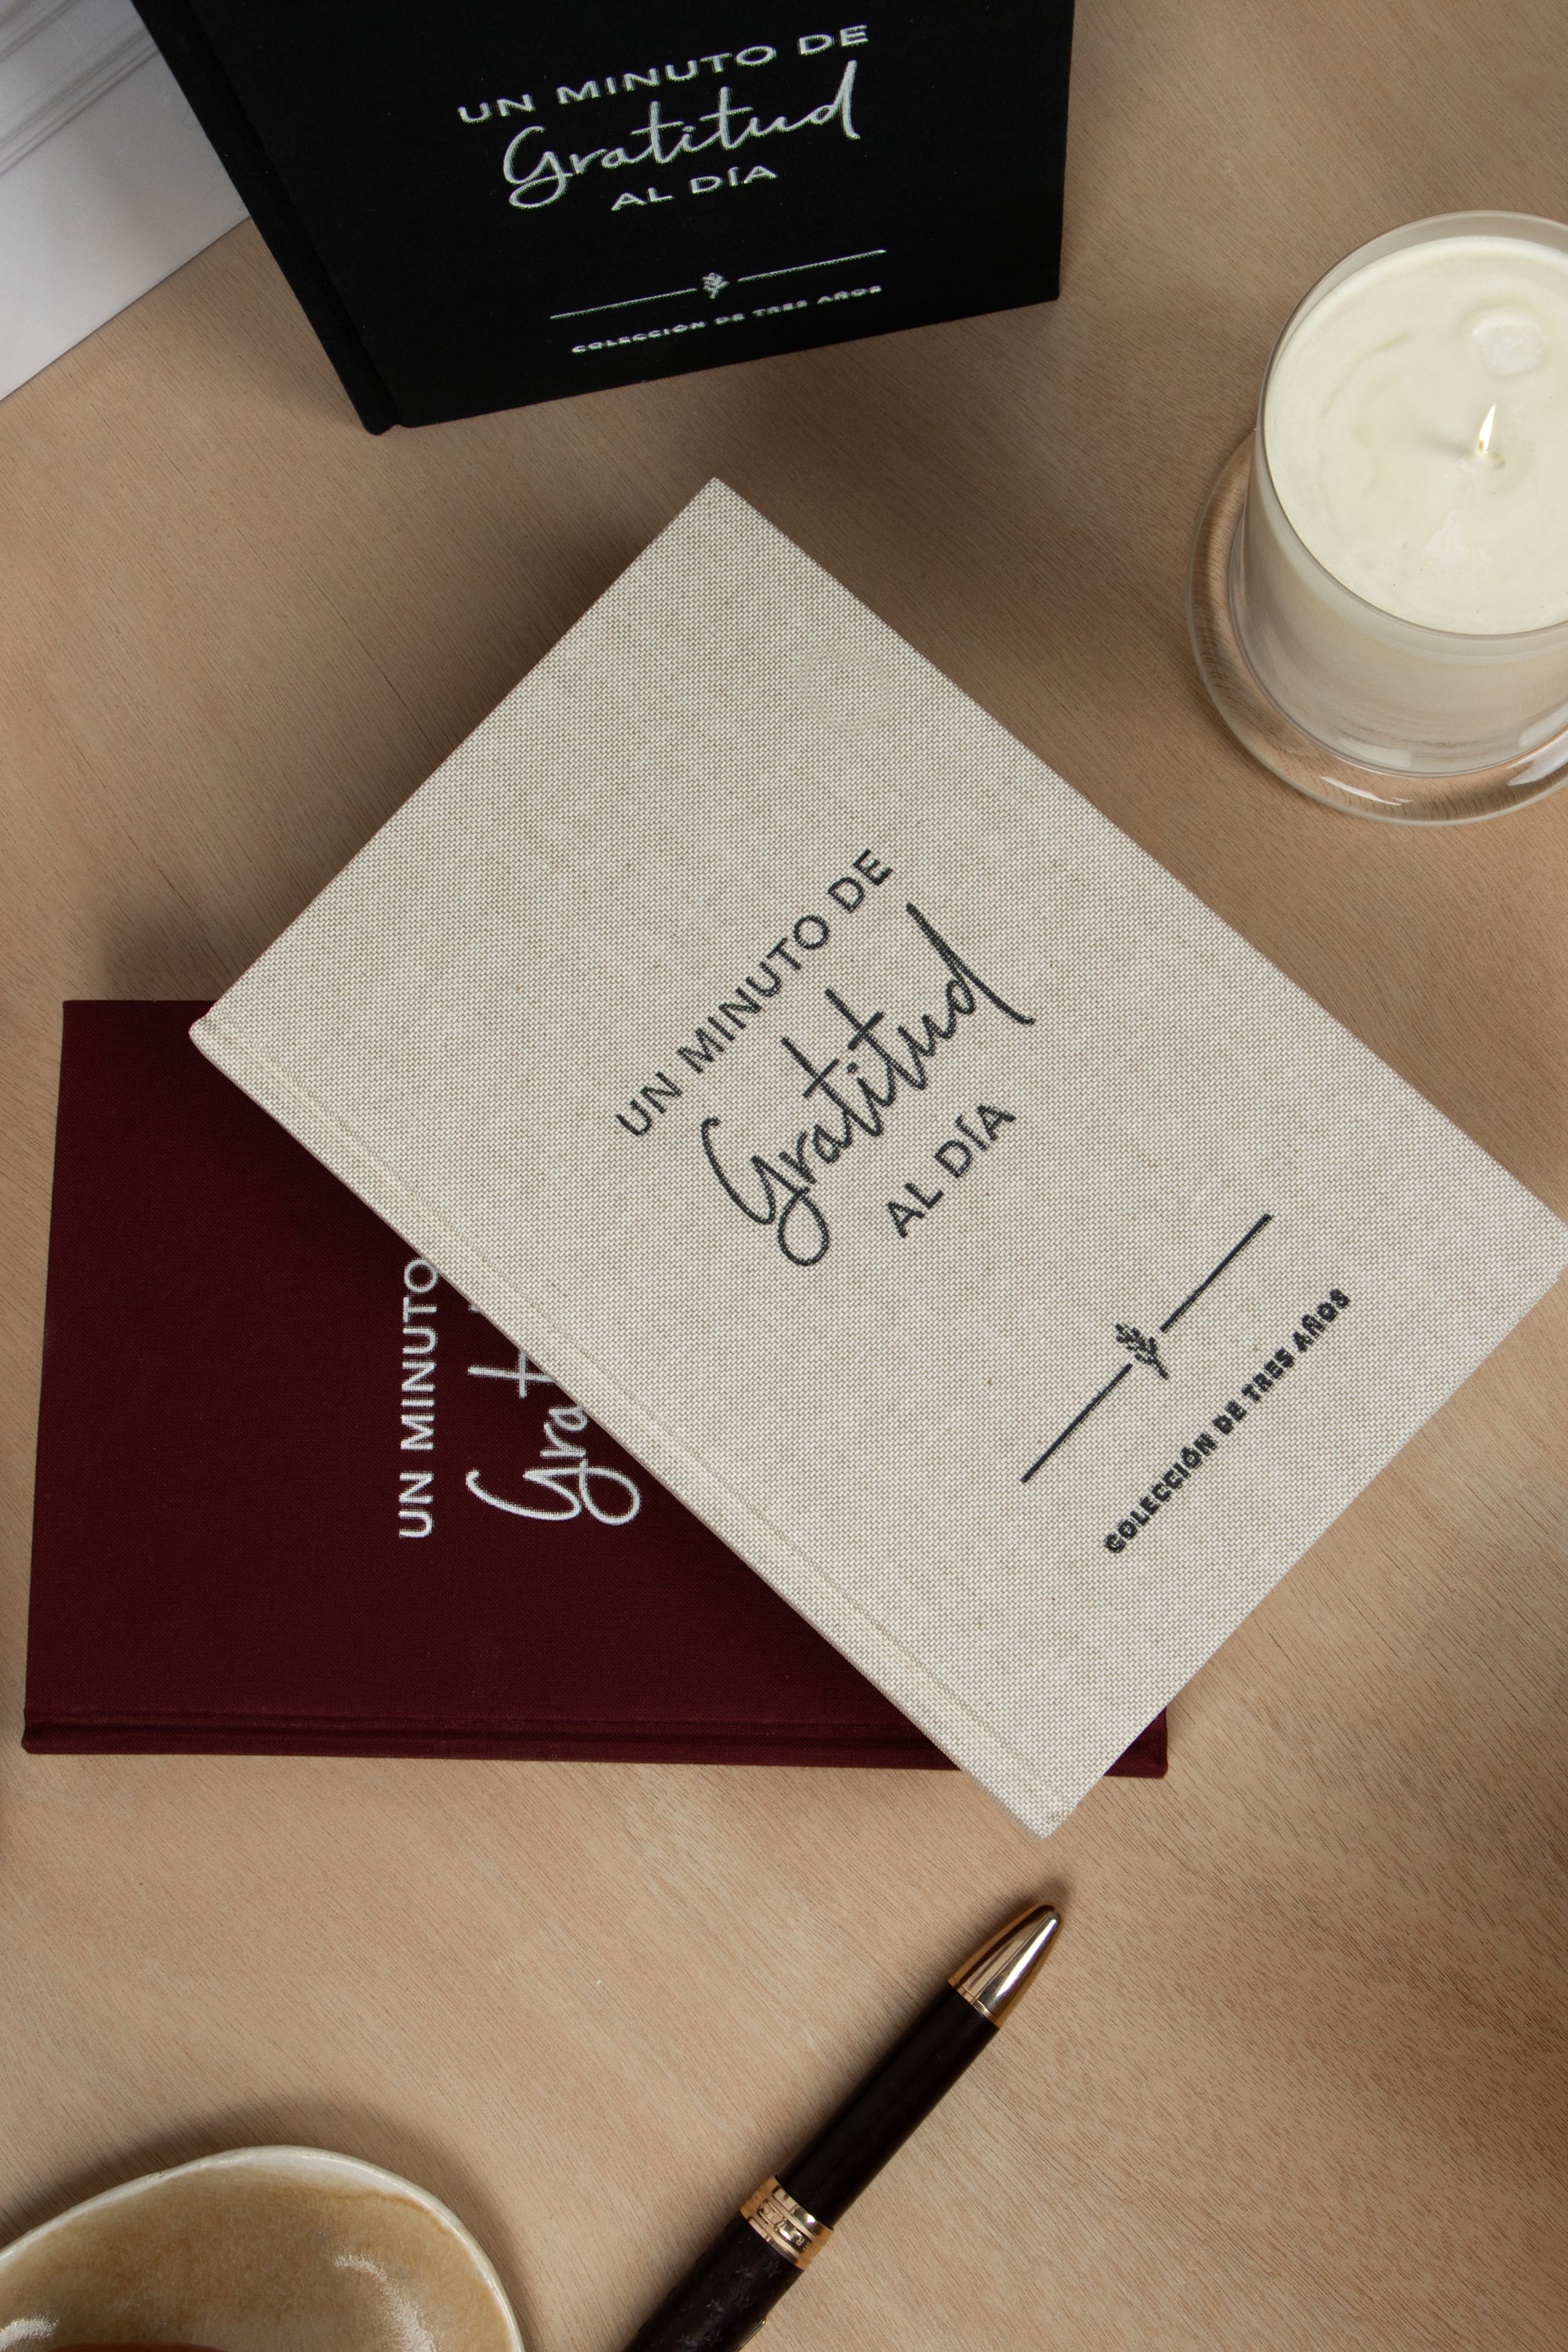 UN MINUTO DE
Gratitud
AL DÍA
COLECCIÓN DE TRES AÑOS
UN MINUTO DE
Gratitud
AL DÍA
COLECCIÓN DE TRES AÑOS
UN MINUTO
Grat